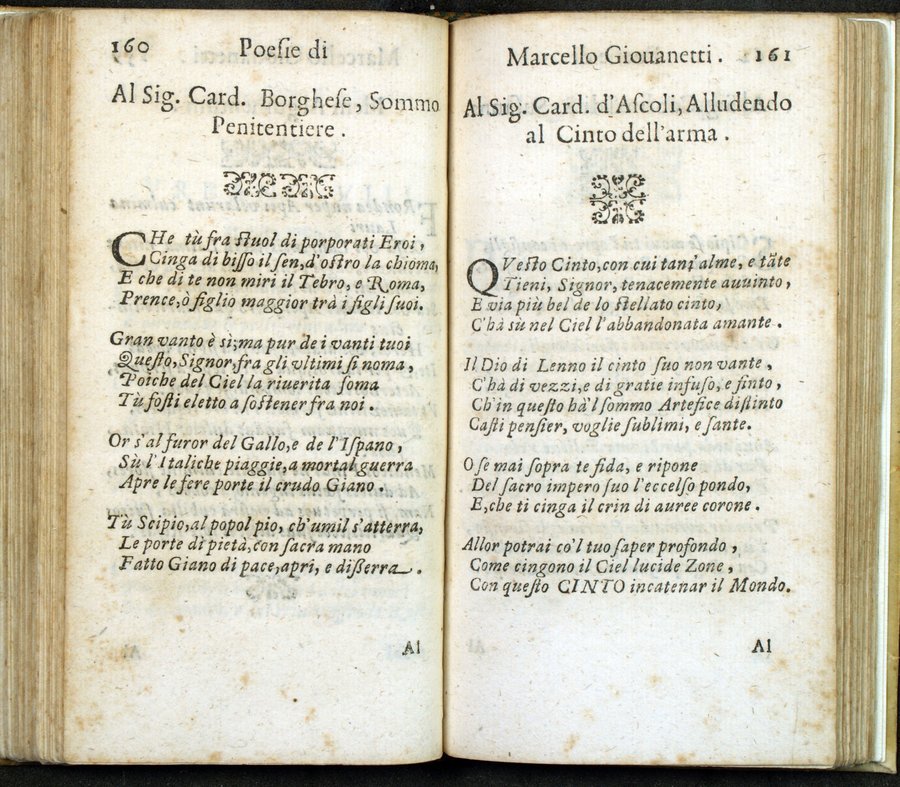 160 Poesie di
Al Sig. Card. Borghese, Sommo
Penitentiere.
CHe tù fra stuol di porporati Eroi,
Cinga di bisso il sen, d'ostro la chioma,
E che di te non miri il Tebro, e Roma,
Prence, ò figlio maggior trà i figli suoi.
Gran vanto è sì; ma pur de i vanti tuoi
Questo, Signor, fra gli vltimi si noma,
Poiche del Ciel la riuerita soma
Tù fosti eletto a sostener fra noi.
Or s'al furor del Gallo, e de l'Ispano,
Sù l'Italiche piagge, a mortal guerra
Apre le fere porte il crudo Giano.
Tù Scipio, al popol pio, ch'umil s'atterra,
Le porte di pietà, con sacra mano
Fatto Giano di pace, apri, e disserra.
Al
Marcello Giouanetti. 161
Al Sig. Card. d'Ascoli, Alludendo
al Cinto dell'arma.
QVesto Cinto, con cui tant'alme, e tãte
Tieni, Signor, tenacemente auuinto,
E via più bel de lo stellato cinto,
C'hà sù nel Ciel l'abbandonata amante.
Il Dio di Lenno il cinto suo non vante,
C'hà di vezzi, e di gratie infuso, e finto,
Ch'in questo hà'l sommo Artefice distinto
Casti pensier, voglie sublimi, e sante.
O se mai sopra te fida, e ripone
Del sacro impero suo l'eccelso pondo,
E, che ti cinga il crin di auree corone.
Allor potrai co'l tuo saper profondo,
Come cingono il Ciel lucide Zone,
Con questo CINTO incatenar il Mondo.
Al